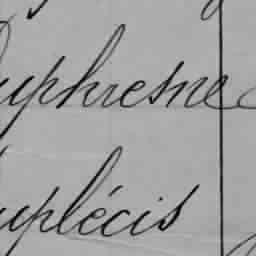 Duphresne
Duplécis